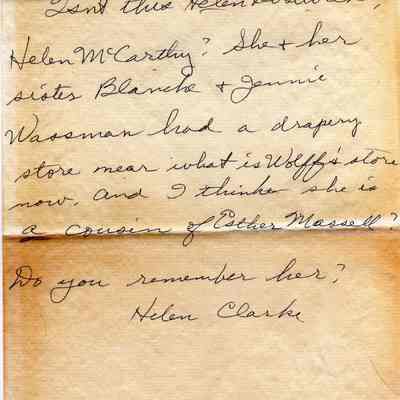 Isn't this Helen
Helen McCarthy? She & her
sister Blanche & Jennie
Wassman had a drapery
store near what is Wolff's store
now. And I think she is
a cousin of Esther Massell?
Do you remember her?
Helen Clarke